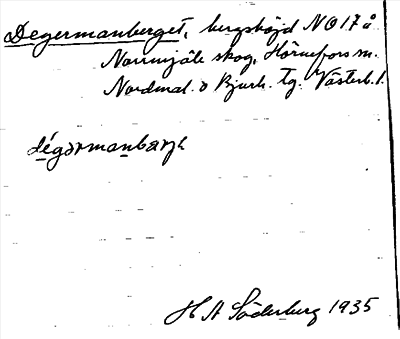 Degermanberget, bergshöjd NO 17 å
Norrmjöle skog, Hörnefors sn.
Nordmal. o Bjurh. tg. Västerb. l.
dégərmanbærjə
H A Söderberg 1935